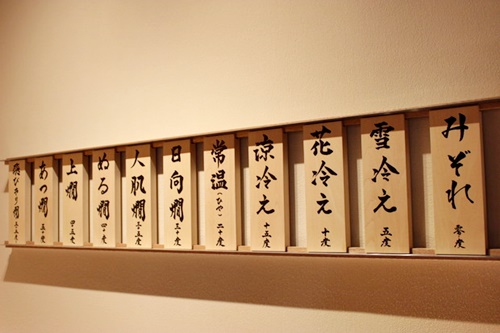 みぞれ 零度
雪冷え 五度
花冷え 十度
涼冷え 十五度
常温(ひや) 二十度
日向燗 三十度
人肌燗 三十五度
ぬる燗 四十度
上燗 四十五度
あつ燗 五十度
飛びきり燗 五十五度